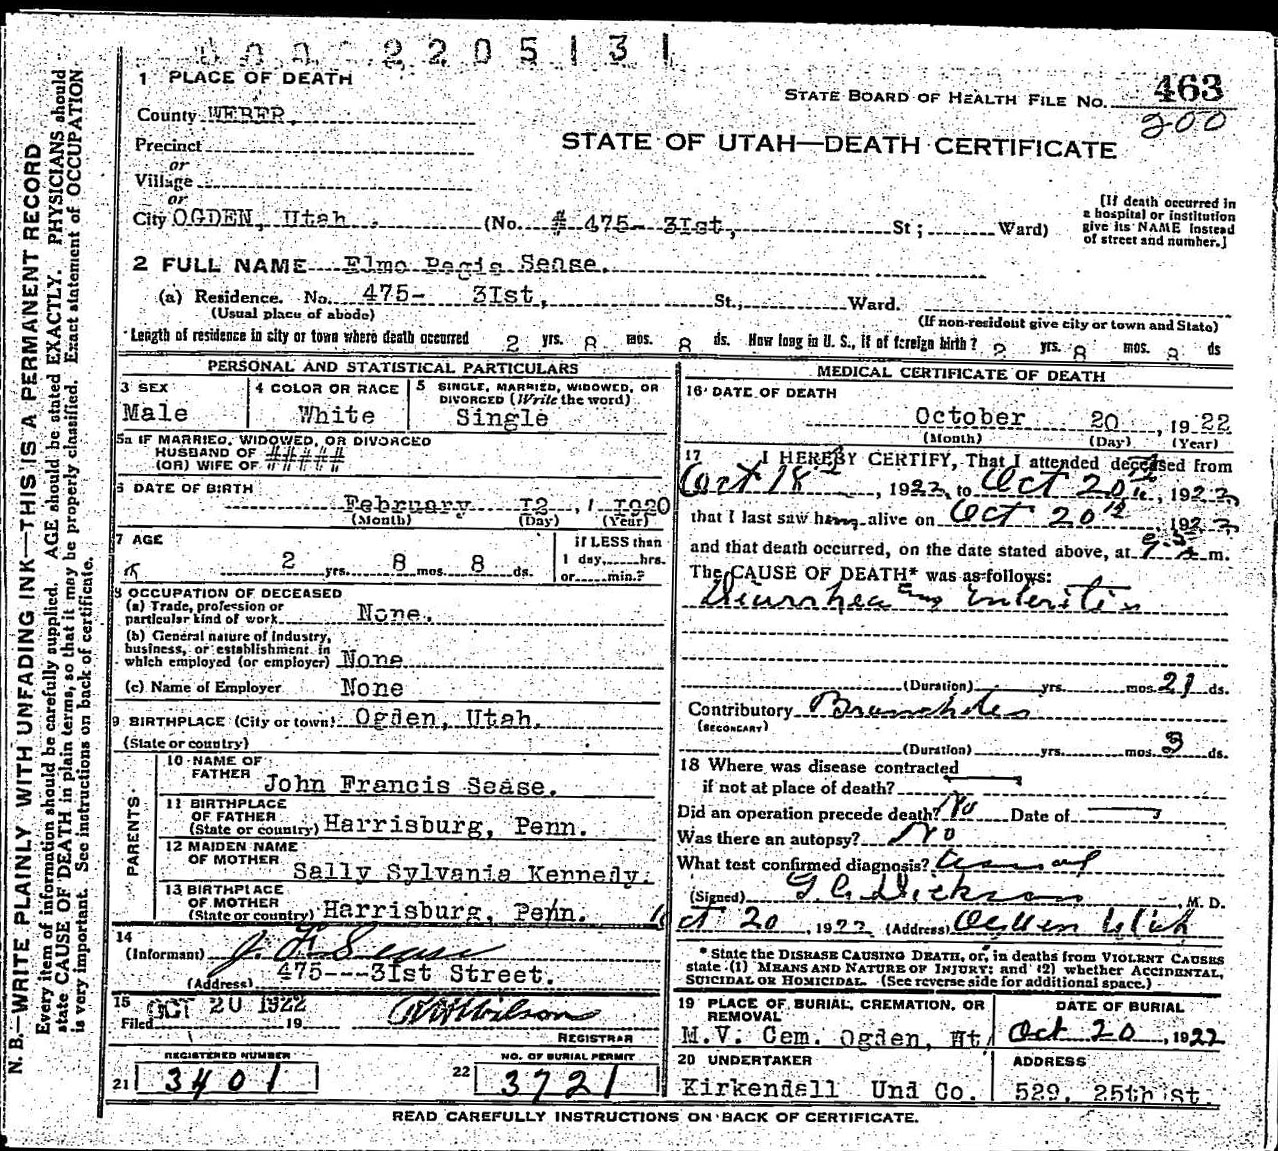 2205131
1 PLACE OF DEATH
STATE BOARD OF HEALTH FILE NO. 463
200
County WEBER.
STATE OF UTAH—DEATH CERTIFICATE
Precinct
or
Village
or
City OGDEN, Utah. (No. # 475- 3Ist, St; Ward)
[If death occurred in
a hospital or institution
give its NAME instead
of street and number.]
2 FULL NAME Elmo Regis Sease.
(a) Residence. No. 475- 3Ist, St., Ward.
(Usual place of abode)
(If non-resident give city or town and State)
Length of residence in city or town where death occurred 2 yrs. 8 mos. 8 ds. How long in U. S., if of foreign birth? 2 yrs. 8 mos. 8 ds
PERSONAL AND STATISTICAL PARTICULARS
3 SEX
Male
4 COLOR OR RACE
White
5 SINGLE, MARRIED, WIDOWED, OR
DIVORCED (Write the word)
Single
5a IF MARRIED, WIDOWED, OR DIVORCED
HUSBAND OF #####
(OR) WIFE OF #####
6 DATE OF BIRTH
February 12, 1920
(Month) (Day) (Year)
7 AGE
2 yrs. 8 mos. 8 ds.
if LESS than
1 day, hrs.
or min.?
8 OCCUPATION OF DECEASED
(a) Trade, profession or
particular kind of work None.
(b) General nature of industry,
business, or establishment in
which employed (or employer) None
(c) Name of Employer None
9 BIRTHPLACE (City or town) Ogden, Utah.
(State or country)
PARENTS
10 NAME OF
FATHER John Francis Sease.
11 BIRTHPLACE
OF FATHER
(State or country) Harrisburg, Penn.
12 MAIDEN NAME
OF MOTHER Sally Sylvania Kennedy.
13 BIRTHPLACE
OF MOTHER
(State or country) Harrisburg, Penn.
14
(Informant) J. F. Sease
(Address) 475---3Ist Street.
15
Filed OCT 20 1922 19
R H Wilson
REGISTRAR
REGISTERED NUMBER
21 3401
NO. OF BURIAL PERMIT
22 3721
MEDICAL CERTIFICATE OF DEATH
16 DATE OF DEATH
October 20, 1922
(Month) (Day) (Year)
17 I HEREBY CERTIFY, That I attended deceased from
Oct 18th, 1922, to Oct 20th, 1922,
that I last saw him alive on Oct 20th, 1922,
and that death occurred, on the date stated above, at m.
The CAUSE OF DEATH* was as follows:
Diarrhea and Enteritis
(Duration) yrs. mos. 21 ds.
Contributory Bronchitis
(SECONDARY)
(Duration) yrs. mos. 3 ds.
18 Where was disease contracted
if not at place of death?
Did an operation precede death? No Date of
Was there an autopsy? No
What test confirmed diagnosis?
(Signed) G. C. Dickson, M. D.
Oct 20, 1922 (Address) Ogden Utah
* State the DISEASE CAUSING DEATH, or, in deaths from VIOLENT CAUSES
state (1) MEANS AND NATURE OF INJURY; and (2) whether ACCIDENTAL,
SUICIDAL OR HOMICIDAL. (See reverse side for additional space.)
19 PLACE OF BURIAL, CREMATION, OR
REMOVAL
M.V. Cem. Ogden, Ut.
DATE OF BURIAL
Oct 20, 1922
20 UNDERTAKER
Kirkendall Und Co.
ADDRESS
529. 25th st.
READ CAREFULLY INSTRUCTIONS ON BACK OF CERTIFICATE.
N. B.—WRITE PLAINLY WITH UNFADING INK—THIS IS A PERMANENT RECORD
Every item of information should be carefully supplied. AGE should be stated EXACTLY. PHYSICIANS should
state CAUSE OF DEATH in plain terms, so that it may be properly classified. Exact statement of OCCUPATION
is very important. See instructions on back of certificate.